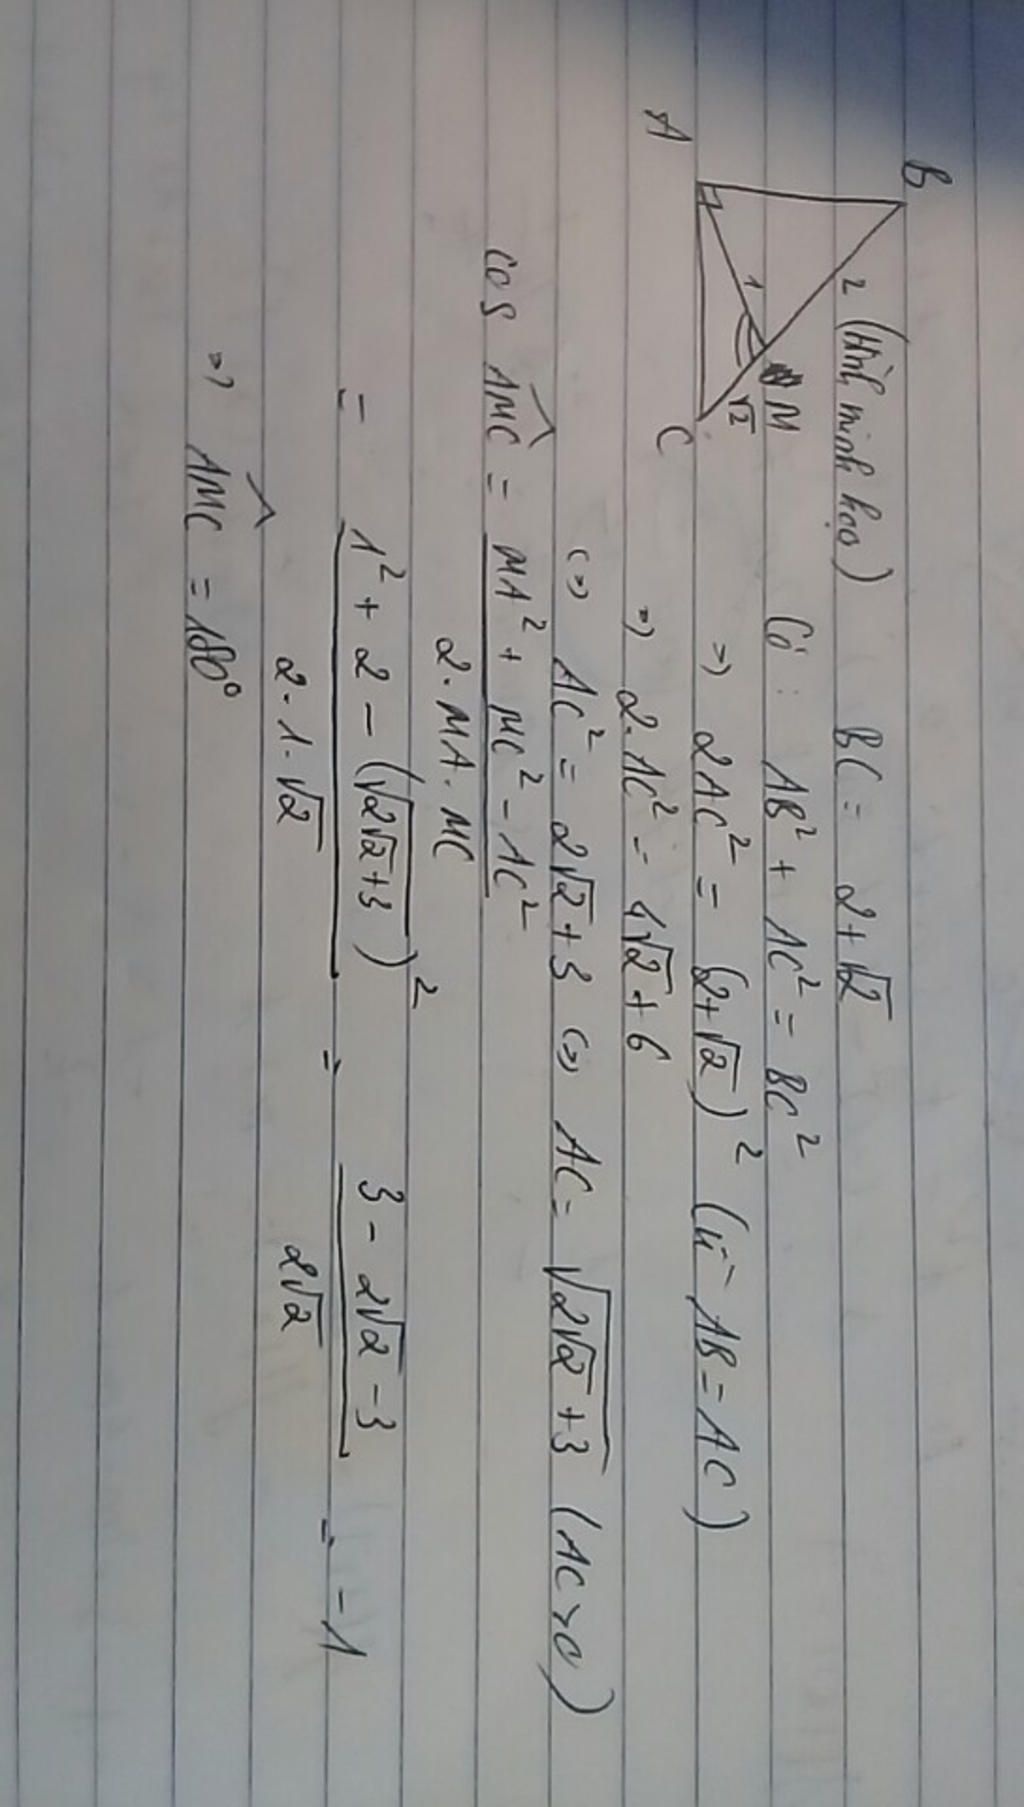 B
2 (Hình minh hoạ) BC = 2+√2
M
1
√2
A
C
Có : AB² + AC² = BC²
=> 2AC² = (2+√2)² (vì AB = AC)
=> 2.AC² = 4√2 + 6
<=> AC² = 2√2 + 3 <=> AC = √(2√2 + 3) (AC > 0)
cos AMC = (MA² + MC² - AC²) / (2.MA.MC)
= (1² + 2 - (√(2√2+3))²) / (2.1.√2) = (3 - 2√2 - 3) / (2√2) = -1
=> AMC = 180°